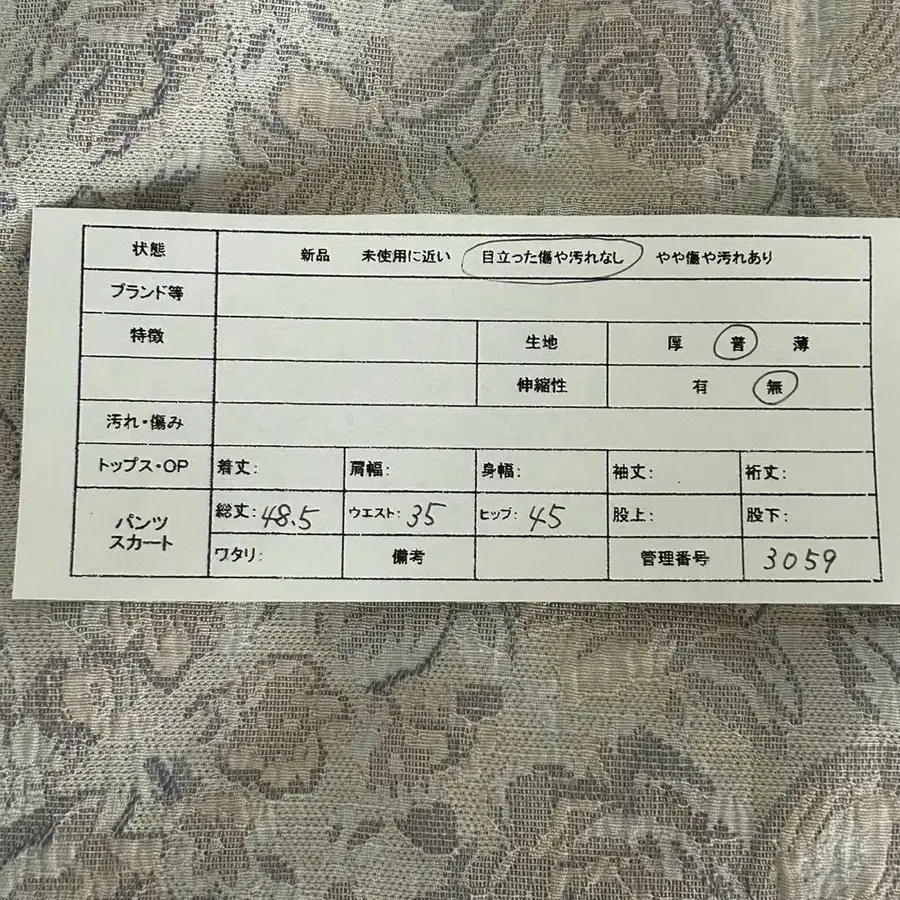 状態 新品 未使用に近い 目立った傷や汚れなし やや傷や汚れあり
ブランド等
特徴 生地 厚 普 薄
伸縮性 有 無
汚れ・傷み
トップス・OP 着丈: 肩幅: 身幅: 袖丈: 裄丈:
パンツ スカート 総丈: 48.5 ウエスト: 35 ヒップ: 45 股上: 股下:
ワタリ: 備考 管理番号 3059